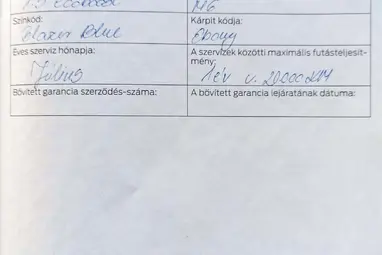 1.5 Ecoboost M6
Színkód: Kárpit kódja:
Blazer Blue Ebony
Éves szerviz hónapja: A szervizek közötti maximális futásteljesít-
mény:
Július 1 év v. 20000 KM
Bővített garancia szerződés-száma: A bővített garancia lejáratának dátuma: